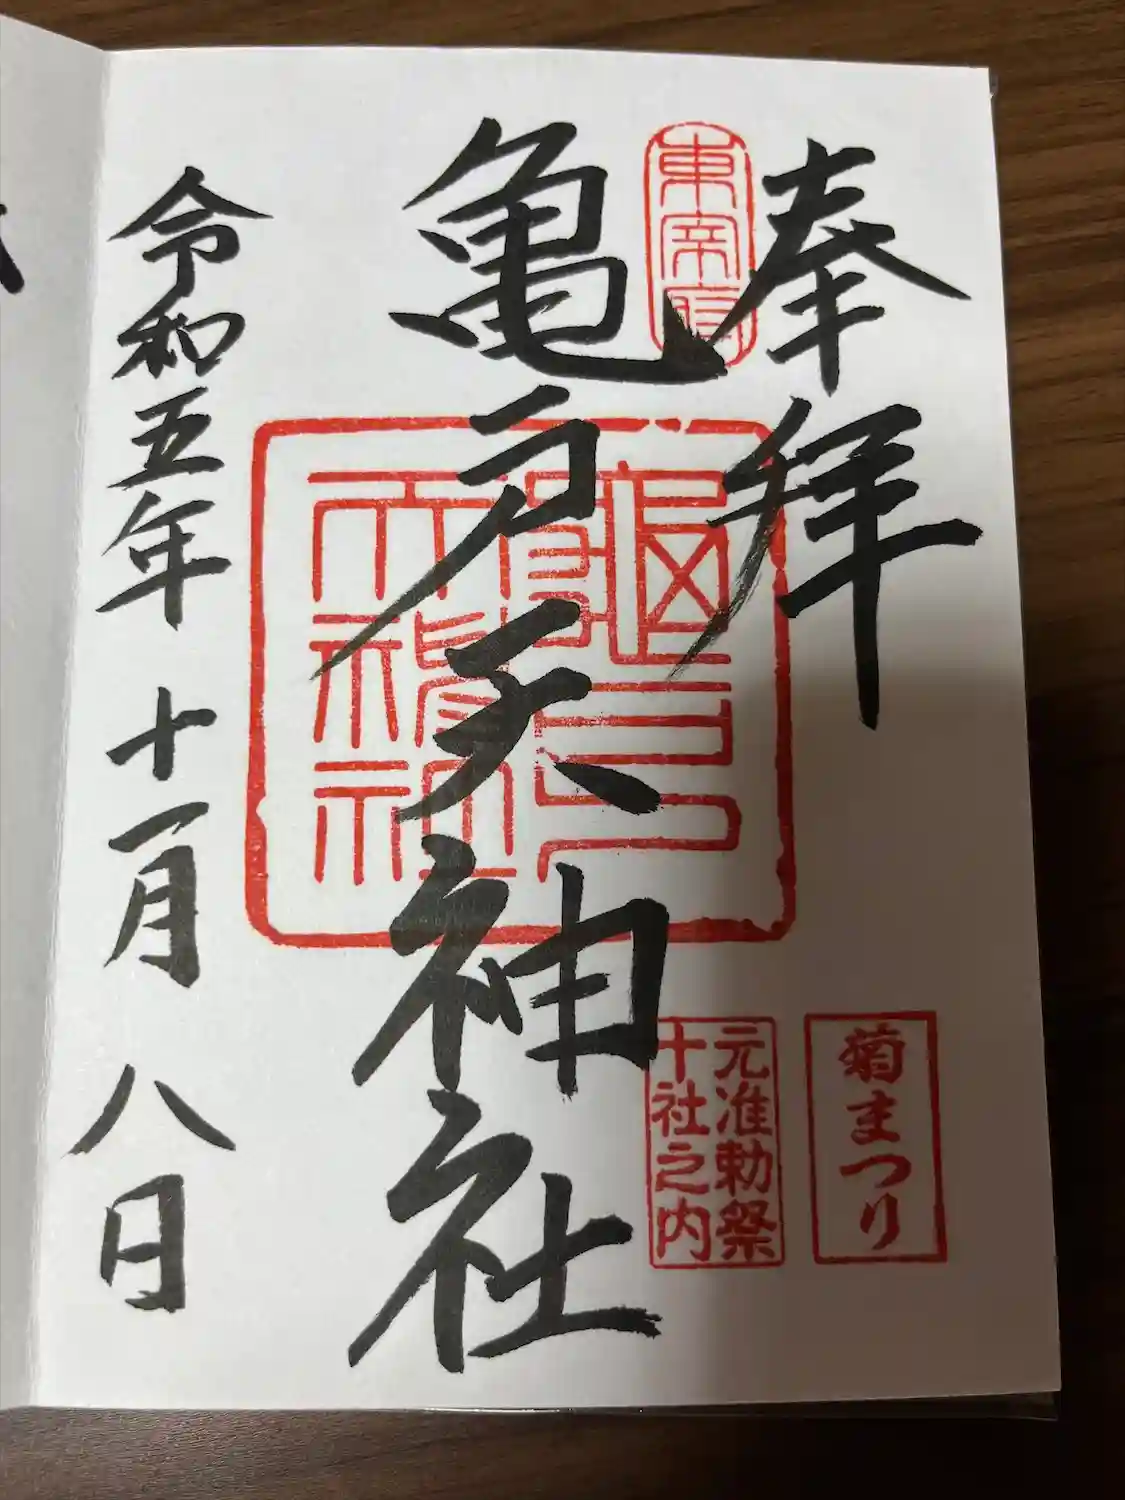 奉拝
東宰府
亀戸天神社
亀戸
天神社
菊まつり
元准勅祭
十社之内
令和五年十一月八日